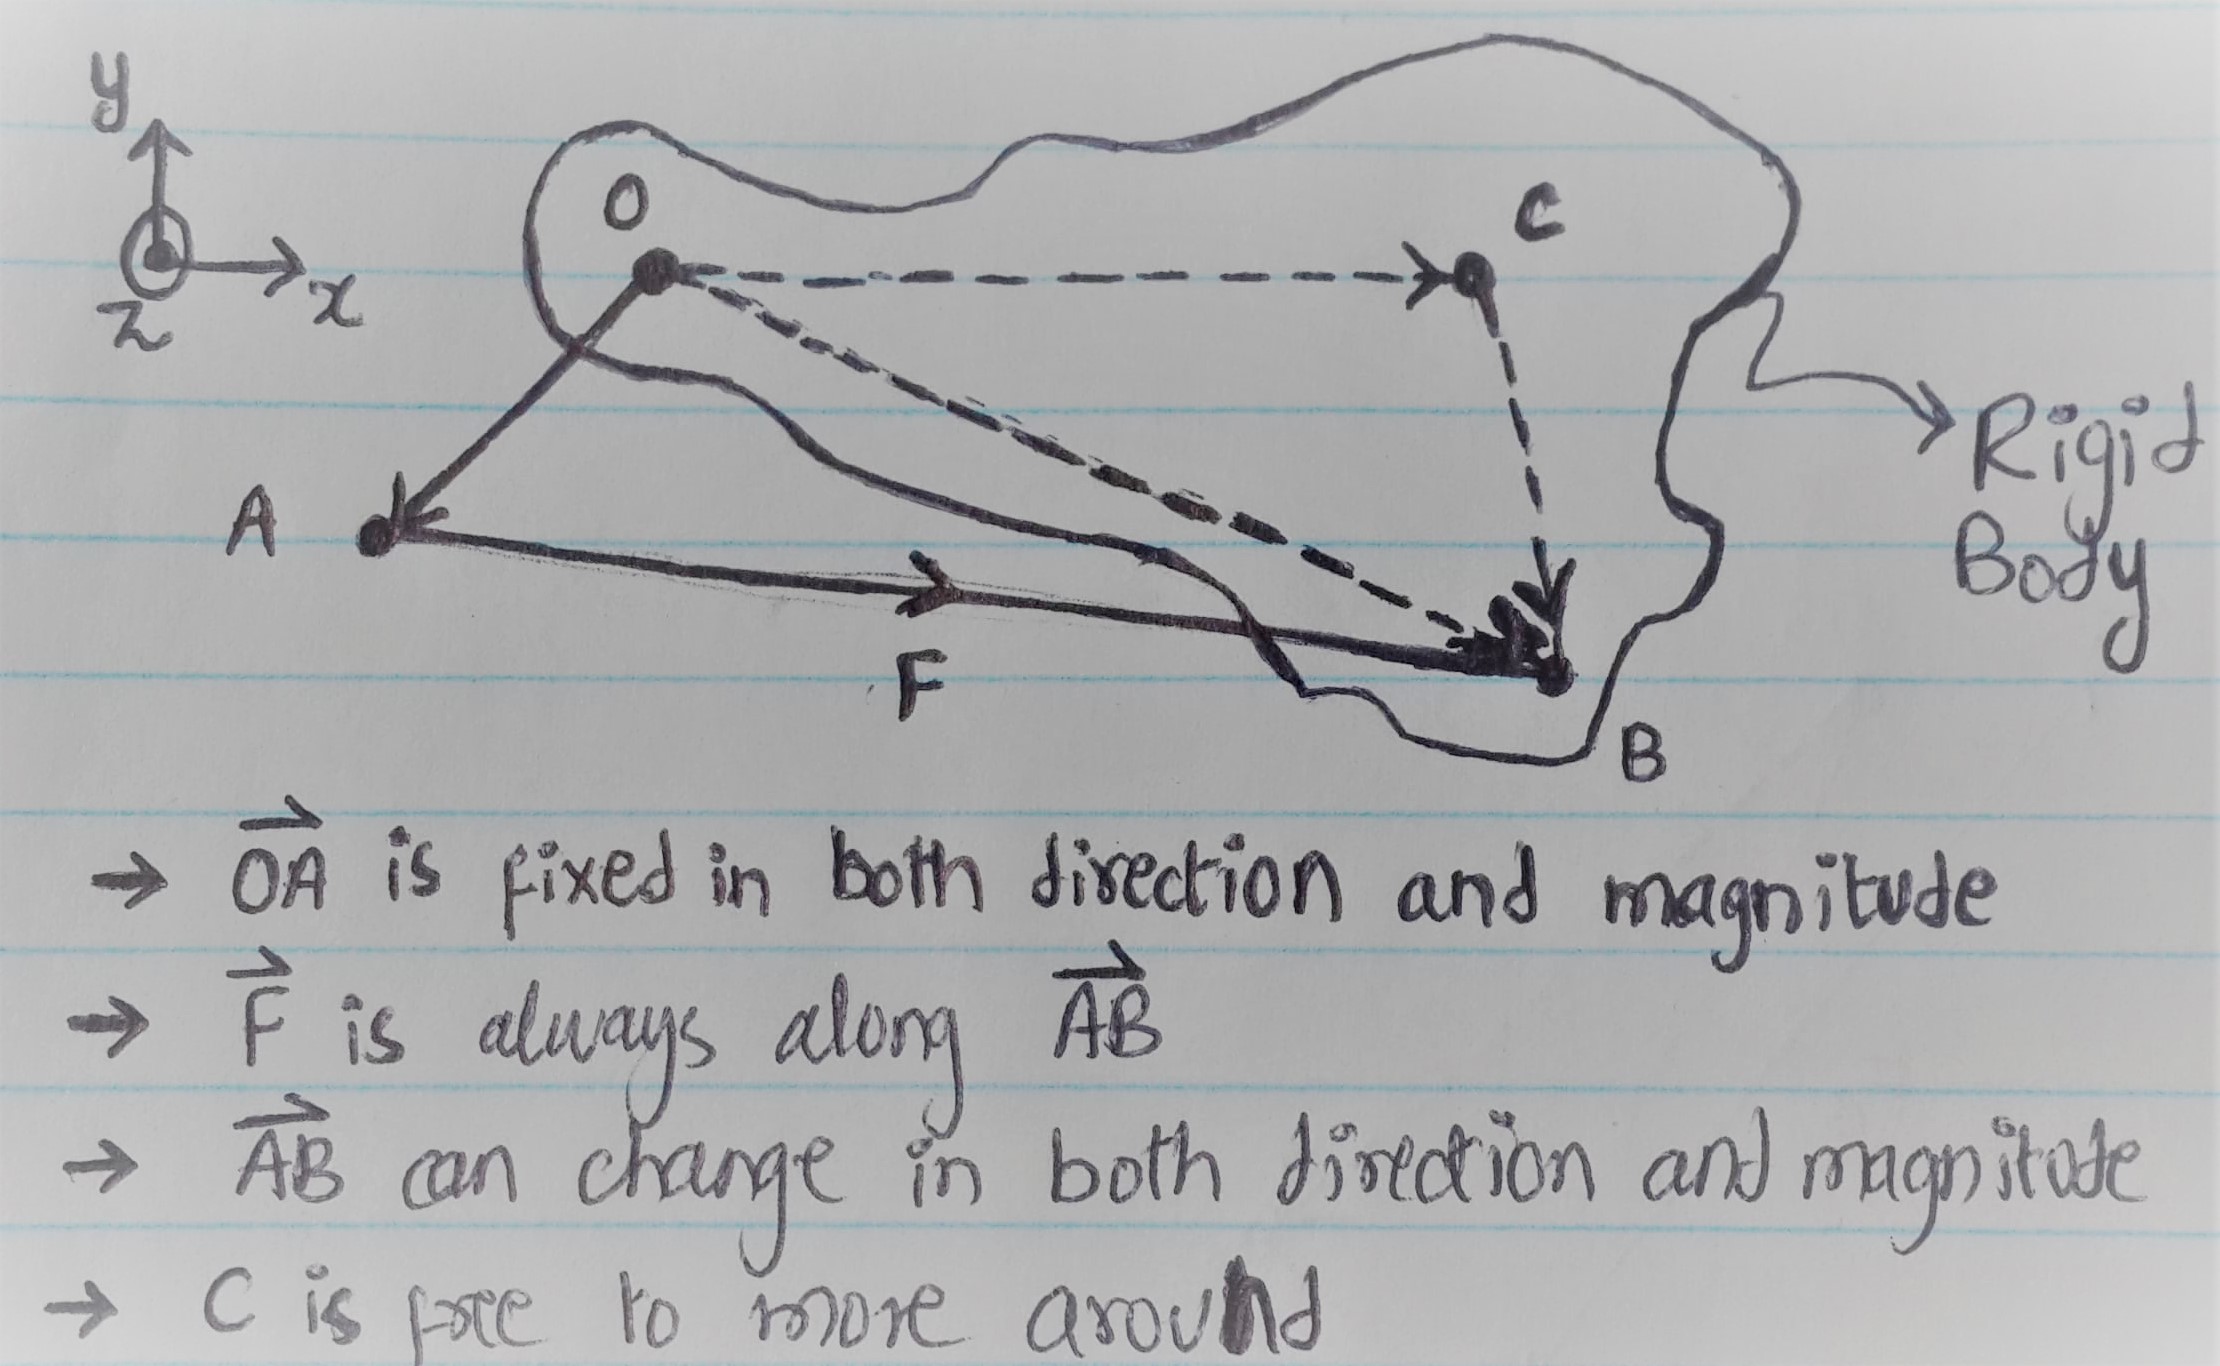 y
O
C
z
x
Rigid
Body
A
F
B
→ OA is fixed in both direction and magnitude
→ F is always along AB
→ AB can change in both direction and magnitude
→ C is free to more around